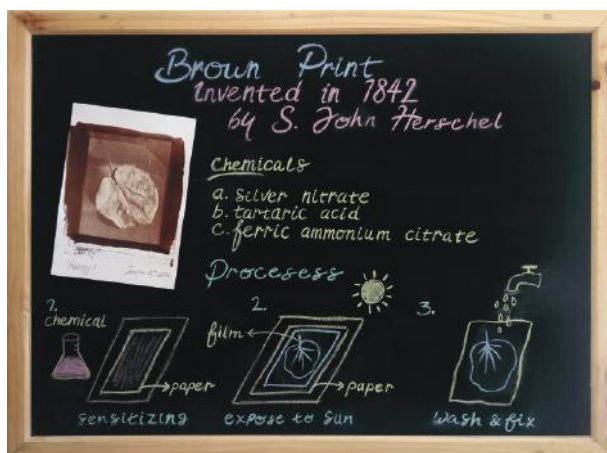 Brown Print
Invented in 1842
by S. John Herschel
Chemicals
a. silver nitrate
b. tartaric acid
c. ferric ammonium citrate
Procesess
1.
chemical
paper
sensitizing
2.
film
paper
expose to sun
3.
wash & fix